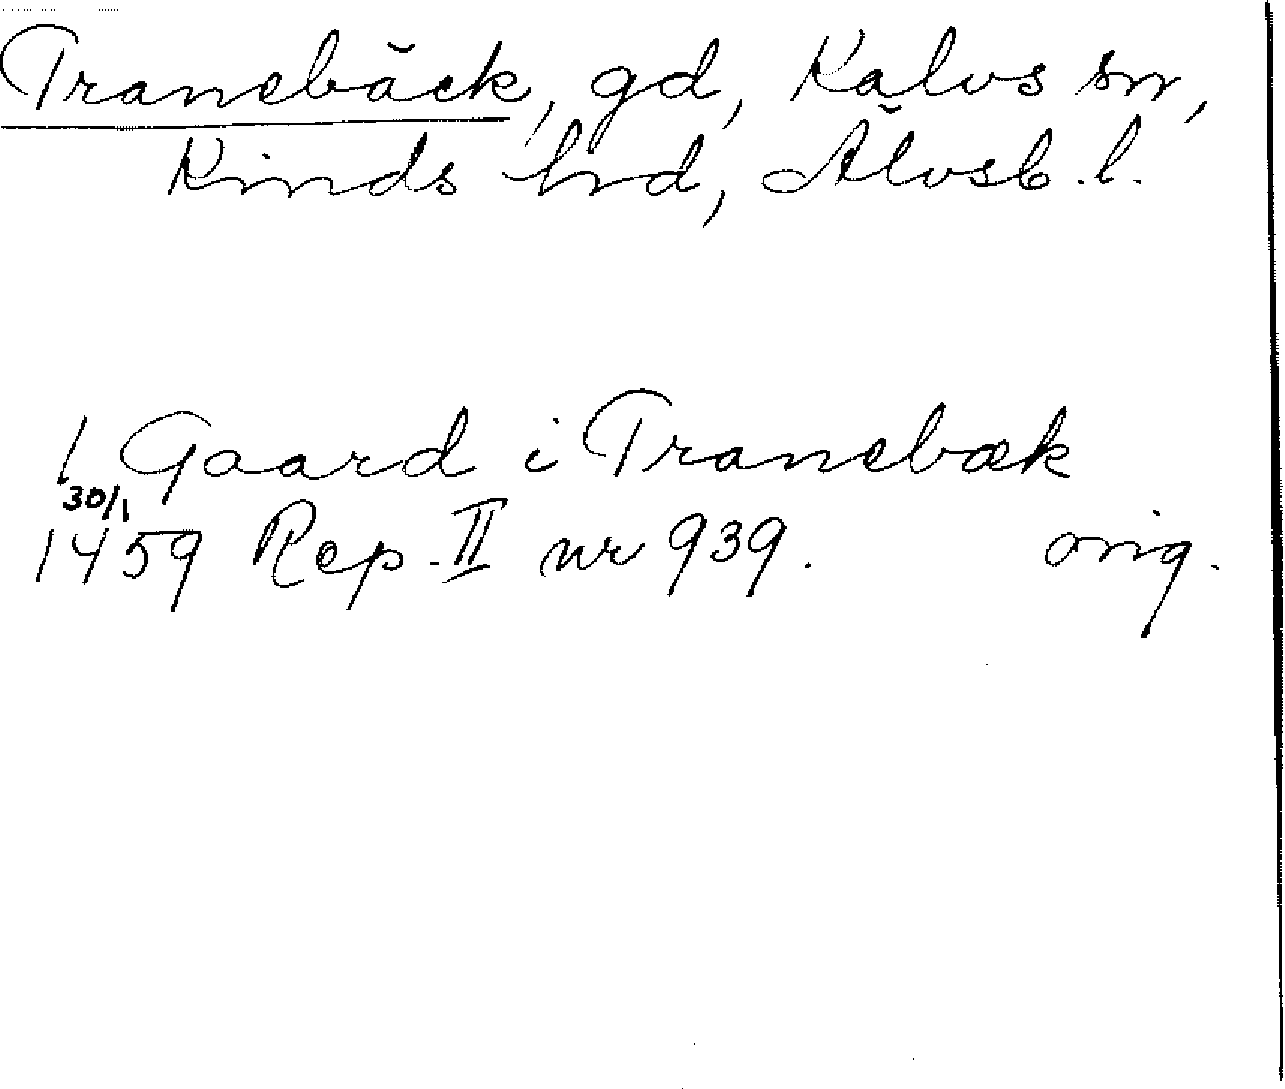 Tranebäck, gd, Kalvs sn,
Kinds hd, Älvsb. l.
1 Gaard i Tranebæk
30/1
1459 Rep. II nr 939. orig.